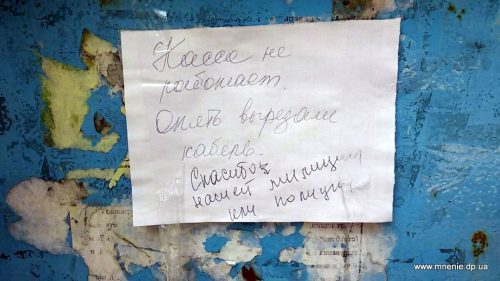 Касса не
работает.
Опять вырезали
кабель.
Спасибо
нашей милиции
или полиции
www.mnenie.dp.ua